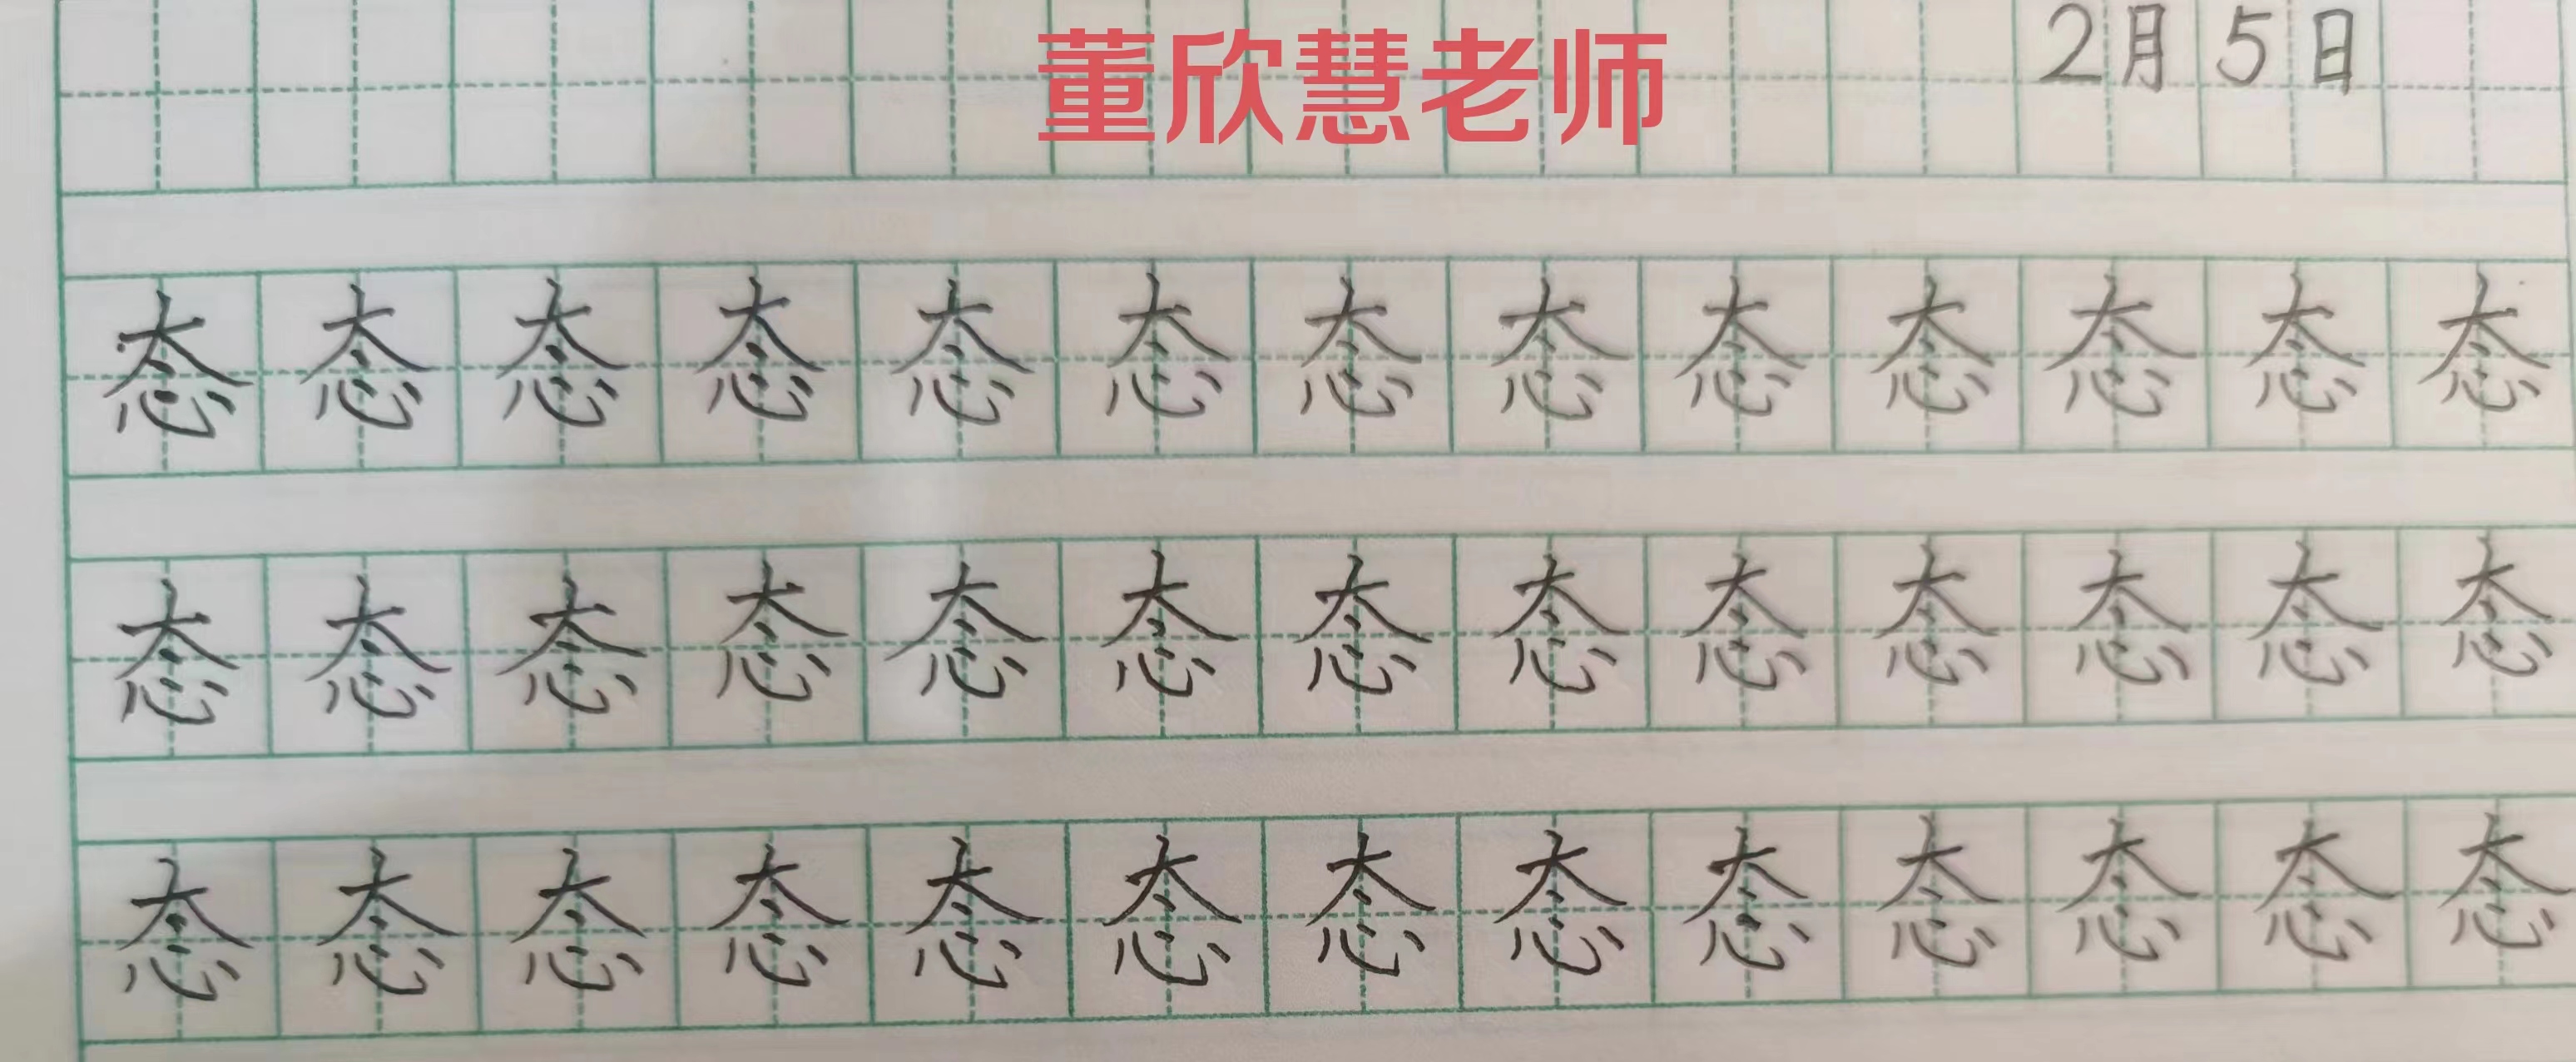 董欣慧老师
2月5日
态态态态态态态态态态态态态
态态态态态态态态态态态态态
态态态态态态态态态态态态态